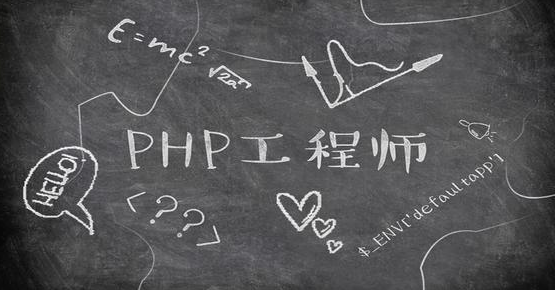 E=mc²
√2a
PHP工程师
HELLO!
<??>
$_ENV['defaultapp']